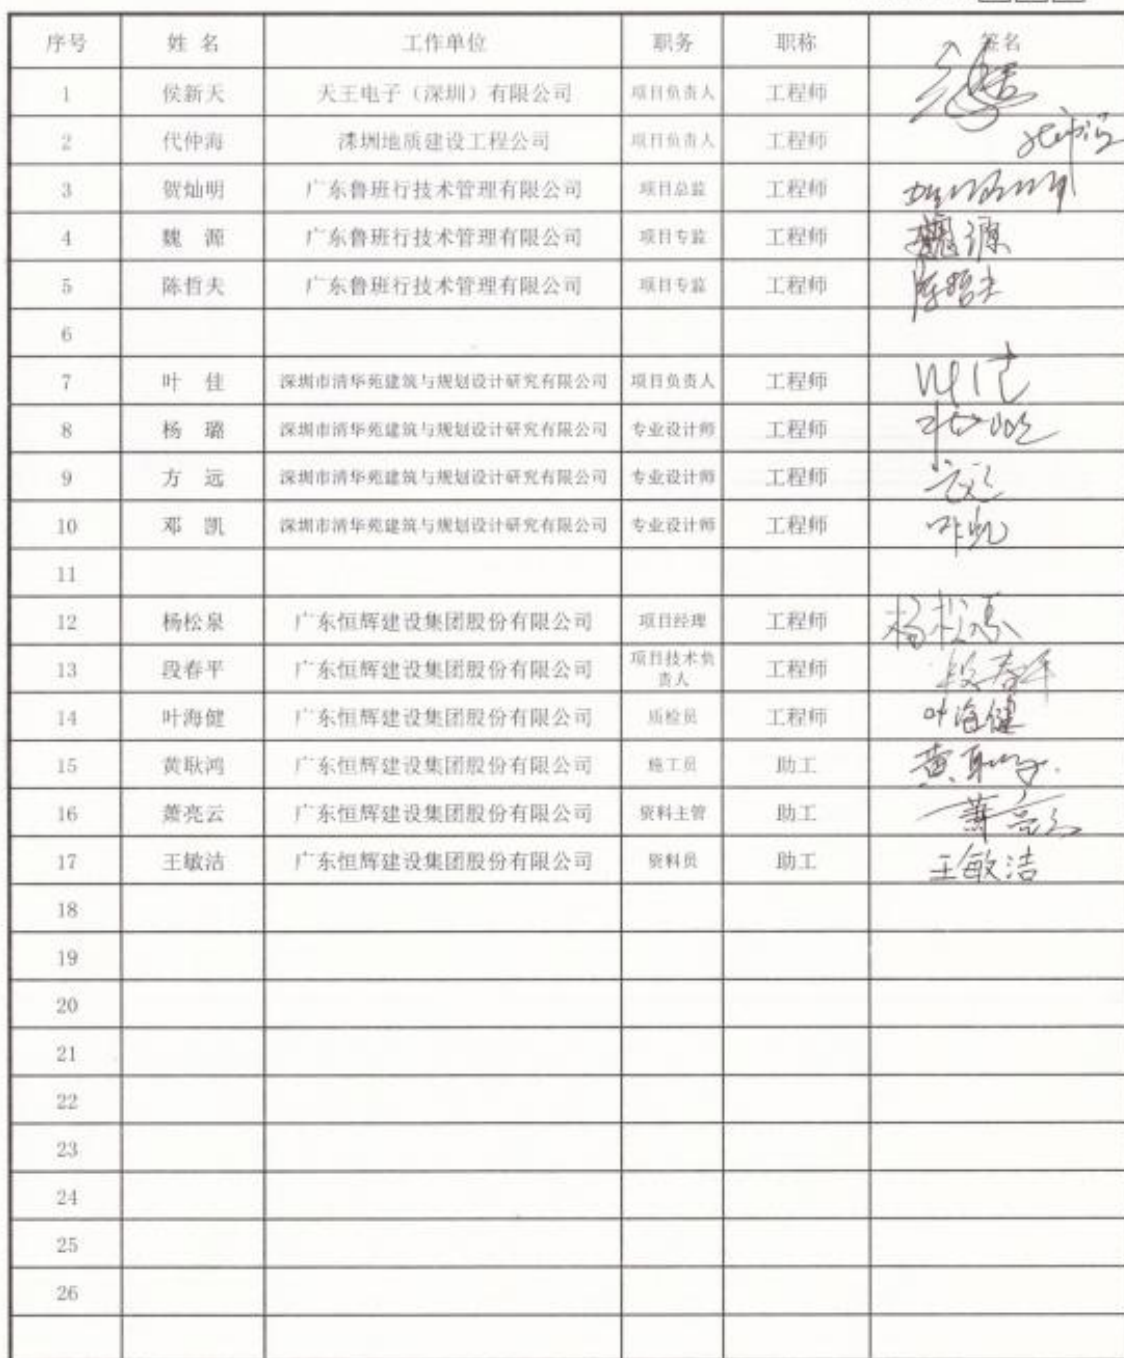 序号 姓 名 工作单位 职务 职称 签名
1 侯新天 天王电子（深圳）有限公司 项目负责人 工程师
2 代仲海 深圳地质建设工程公司 项目负责人 工程师
3 贺灿明 广东鲁班行技术管理有限公司 项目总监 工程师
4 魏 源 广东鲁班行技术管理有限公司 项目专监 工程师 魏源
5 陈哲夫 广东鲁班行技术管理有限公司 项目专监 工程师 陈哲夫
6
7 叶 佳 深圳市清华苑建筑与规划设计研究有限公司 项目负责人 工程师
8 杨 璐 深圳市清华苑建筑与规划设计研究有限公司 专业设计师 工程师
9 方 远 深圳市清华苑建筑与规划设计研究有限公司 专业设计师 工程师
10 邓 凯 深圳市清华苑建筑与规划设计研究有限公司 专业设计师 工程师
11
12 杨松泉 广东恒辉建设集团股份有限公司 项目经理 工程师 杨松泉
13 段春平 广东恒辉建设集团股份有限公司 项目技术负责人 工程师 段春平
14 叶海健 广东恒辉建设集团股份有限公司 质检员 工程师 叶海健
15 黄耿鸿 广东恒辉建设集团股份有限公司 施工员 助工
16 萧亮云 广东恒辉建设集团股份有限公司 资料主管 助工 萧亮云
17 王敏洁 广东恒辉建设集团股份有限公司 资料员 助工 王敏洁
18
19
20
21
22
23
24
25
26